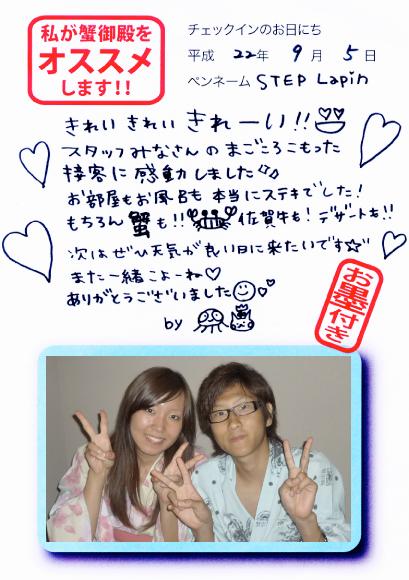 私が蟹御殿を
オススメ
します!!
チェックインのお日にち
平成 22年 9月 5日
ペンネーム STEP Lapin
きれい きれい きれーい!!
スタッフみなさんの まごころこもった
接客に 感動しました
お部屋もお風呂も 本当にステキでした!
もちろん 蟹も!! 佐賀牛も! デザートも!!
次は ぜひ 天気が 良い日に 来たいです☆
また 一緒 こよーね♡
ありがとうございました
by
お墨付き